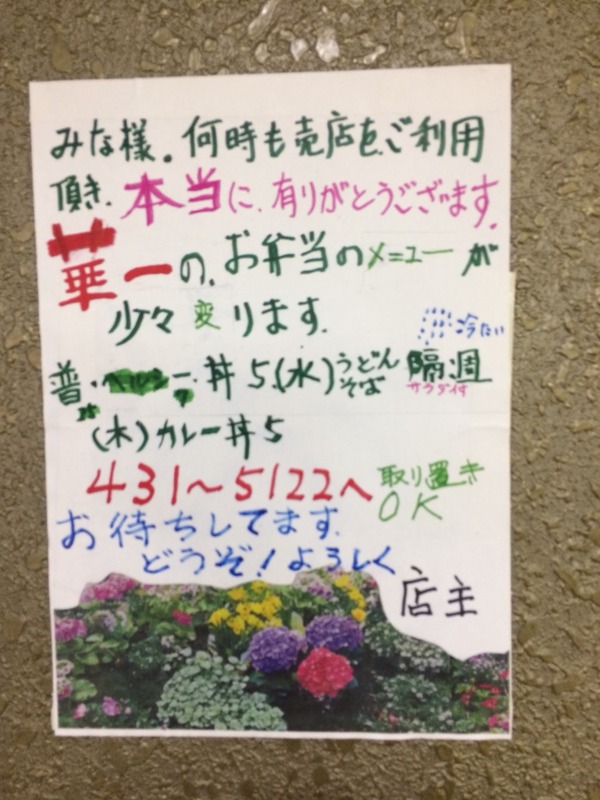 みな様。何時も売店をご利用
頂き、本当に、有りがとうございます。
華一の、お弁当のメニューが
少々変ります。
冷たい
普・ヘルシー・丼5、(水)うどんそば 隔週
サラダ付
(木)カレー丼5
431〜5122へ 取り置き
OK
お待ちしてます。
どうぞ!よろしく
店主